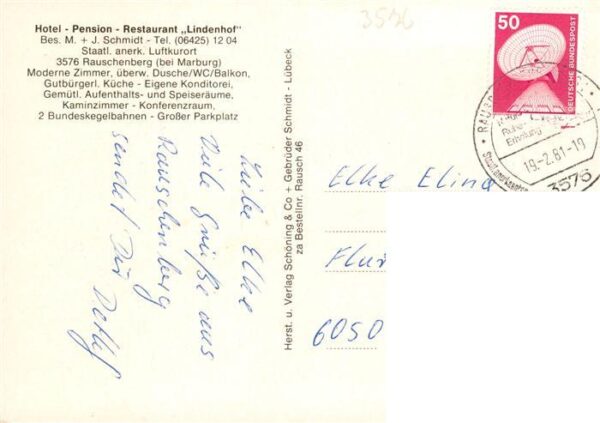 Hotel - Pension - Restaurant „Lindenhof“
Bes. M. + J. Schmidt - Tel. (06425) 12 04
Staatl. anerk. Luftkurort
3576 Rauschenberg (bei Marburg)
Moderne Zimmer, überw. Dusche/WC/Balkon,
Gutbürgerl. Küche - Eigene Konditorei,
Gemütl. Aufenthalts- und Speiseräume,
Kaminzimmer - Konferenzraum,
2 Bundeskegelbahnen - Großer Parkplatz
Liebe Elke
Viele Grüße aus
Rauschenberg
sendet Dir Detlef
Herst. u. Verlag Schöning & Co + Gebrüder Schmidt - Lübeck
za Bestellnr. Rausch 46
3576
50
DEUTSCHE BUNDESPOST
Ruhe
Erholung
19.-2.81-19
3576
Elke Elina
Flur
6050